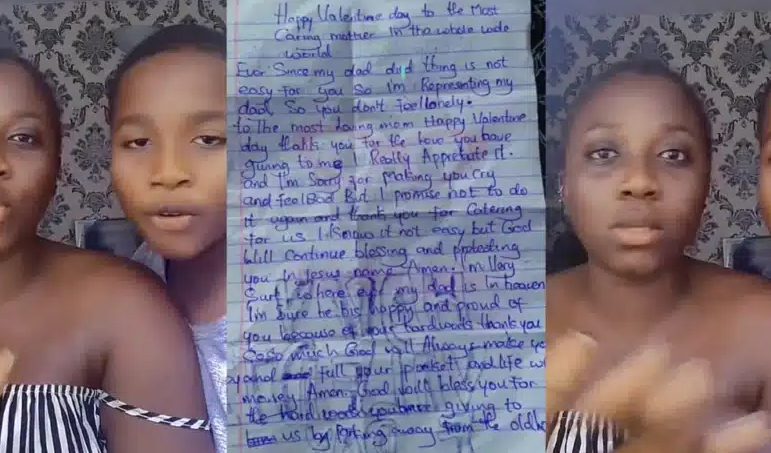 Happy Valentine day to the Most
Caring mother in the whole wide
world
Ever Since my dad died thing is not
easy for you So i'm Representing my
dad, So you don't feel lonely.
to the most loving mom Happy Valentine
day thanks you for the love you have
giving to me I Really Appretiate it.
and I'm Sorry for making you Cry
and feel Bad But I promise not to do
it again and thank you for Catering
for us I know it not easy but God
Will continue blessing and protesting
you In Jesus name Amen. I'm Very
where ever my dad is In heaven
I'm sure he his happy and proud of
you because of your hardwords thank you
Soso much God will Always make yo
full your pocket and life wi
money Amen. God will bless you for
the hard words you giving to
us by away from the oldho